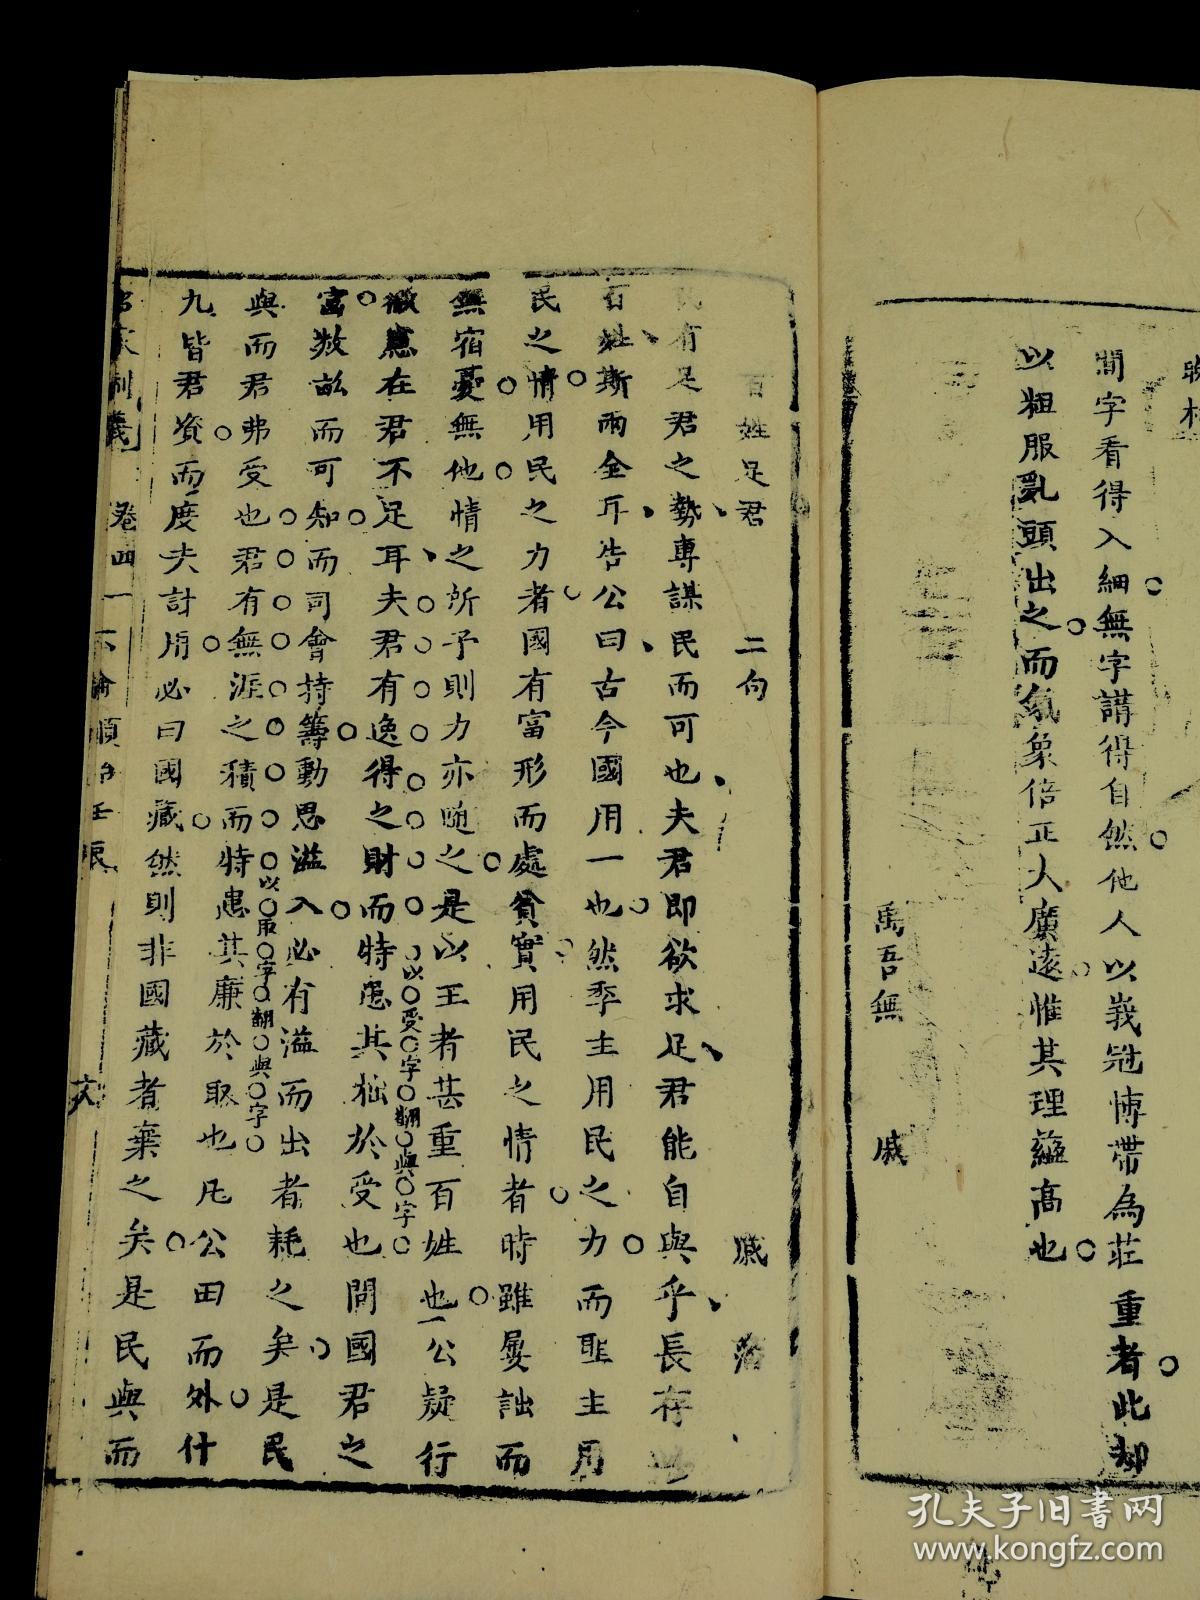 晚村
間字看得入細無字講得自然他人以峩冠博帶為莊重者此却
以粗服亂頭出之而氣象倍正大廣遠惟其理蘊高也
禹吾無 戚
百姓足君 二句 戚 藩
民有足君之勢專謀民而可也夫君即欲求足君能自與乎長存
百姓斯兩全耳告公曰古今國用一也然季主用民之力而聖主用
民之情用民之力者國有富形而處貧實用民之情者時雖屢詘而
無宿憂無他情之所予則力亦隨之是以王者甚重百姓也公疑行
徹慮在君不足耳夫君有逸得之財而特患其拙於受也問國君之
以受字翻與字
富数畝而可知而司會持籌動思溢入必有溢而出者耗之矣是民
以取字翻與字
與而君弗受也君有無涯之積而特患其廉於取也凡公田而外什
九皆君資而度夫計用必曰國藏然則非國藏者棄之矣是民與而
名家制義 卷四 下論順治壬辰 六
孔夫子旧书网
www.kongfz.com